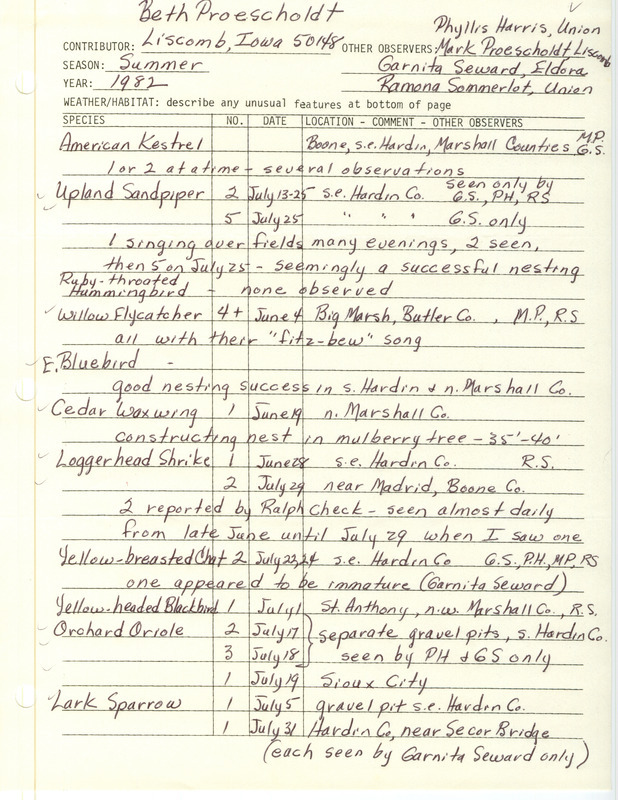 Beth Proescholdt
CONTRIBUTOR: Liscomb, Iowa 50148 OTHER OBSERVERS: Phyllis Harris, Union
Mark Proescholdt Liscomb
SEASON: Summer Garnita Seward, Eldora
YEAR: 1982 Ramona Sommerlot, Union
WEATHER/HABITAT: describe any unusual features at bottom of page
SPECIES NO. DATE LOCATION - COMMENT - OTHER OBSERVERS
American Kestrel Boone, s.e. Hardin, Marshall Counties M.P. G.S.
1 or 2 at a time - several observations
Upland Sandpiper 2 July 13-25 s.e. Hardin Co. seen only by G.S., PH, RS
5 July 25 " " " G.S. only
1 singing over fields many evenings, 2 seen,
then 5 on July 25 - seemingly a successful nesting
Ruby-throated
Hummingbird - none observed
Willow Flycatcher 4+ June 4 Big Marsh, Butler Co. , M.P., R.S
all with their "fitz-bew" song
E. Bluebird -
good nesting success in s. Hardin & n. Marshall Co.
Cedar Waxwing 1 June 19 n. Marshall Co.
constructing nest in mulberry tree - 35'-40'
Loggerhead Shrike 1 June 28 s.e. Hardin Co. R.S.
2 July 29 near Madrid, Boone Co.
2 reported by Ralph Check - seen almost daily
from late June until July 29 when I saw one
Yellow-breasted Chat 2 July 22,24 s.e. Hardin Co G.S., P.H., MP, RS
one appeared to be immature (Garnita Seward)
Yellow-headed Blackbird 1 July 1 St. Anthony, n.w. Marshall Co., R.S.
Orchard Oriole 2 July 17 } separate gravel pits, s. Hardin Co.
3 July 18 } seen by PH & GS only
1 July 19 Sioux City
Lark Sparrow 1 July 5 gravel pit s.e. Hardin Co.
1 July 31 Hardin Co, near Secor Bridge
(each seen by Garnita Seward only)